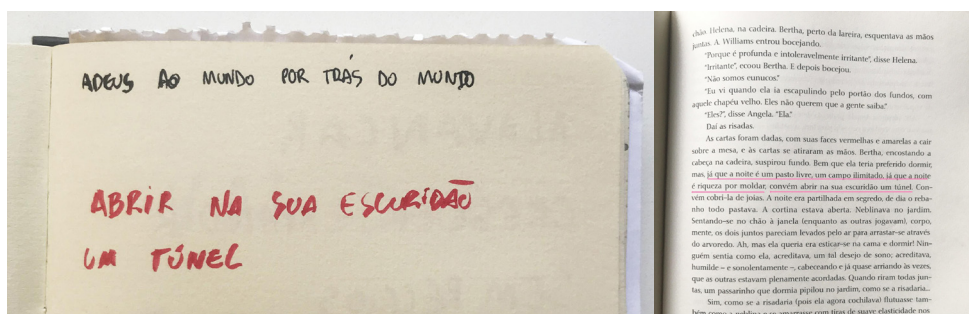 ADEUS AO MUNDO POR TRÁS DO MUNDO
ABRIR NA SUA ESCURIDÃO
UM TÚNEL
chão Helena, na cadeira. Bertha, perto da lareira, esquentava as mãos
juntas. A. Williams entrou bocejando.
“Porque é profunda e intoleravelmente irritante”, disse Helena.
“Irritante”, ecoou Bertha. E depois bocejou.
“Não somos eunucos.”
“Eu vi quando ela ia escapulindo pelo portão dos fundos, com
aquele chapéu velho. Eles não querem que a gente saiba.”
“Eles?”, disse Angela. “Ela.”
Daí as risadas.
As cartas foram dadas, com suas faces vermelhas e amarelas a cair
sobre a mesa, e às cartas se atiraram as mãos. Bertha, encostando a
cabeça na cadeira, suspirou fundo. Bem que ela teria preferido dormir,
mas, já que a noite é um pasto livre, um campo ilimitado, já que a noite
é riqueza por moldar, convém abrir na sua escuridão um túnel. Con-
vém cobri-la de joias. A noite era partilhada em segredo, de dia o reba-
nho todo pastava. A cortina estava aberta. Neblinava no jardim.
Sentando-se no chão à janela (enquanto as outras jogavam), corpo,
mente, os dois juntos pareciam levados pelo ar para arrastar-se através
do arvoredo. Ah, mas ela queria era esticar-se na cama e dormir! Nin-
guém sentia como ela, acreditava, um tal desejo de sono; acreditava,
humilde – e sonolentamente –, cabeceando e já quase arriando às vezes,
que as outras estavam plenamente acordadas. Quando riram todas jun-
tas, um passarinho que dormia pipilou no jardim, como se a risadaria...
Sim, como se a risadaria (pois ela agora cochilava) flutuasse tam-
bém como a neblina e se amarrasse com tiras de suave elasticidade nos